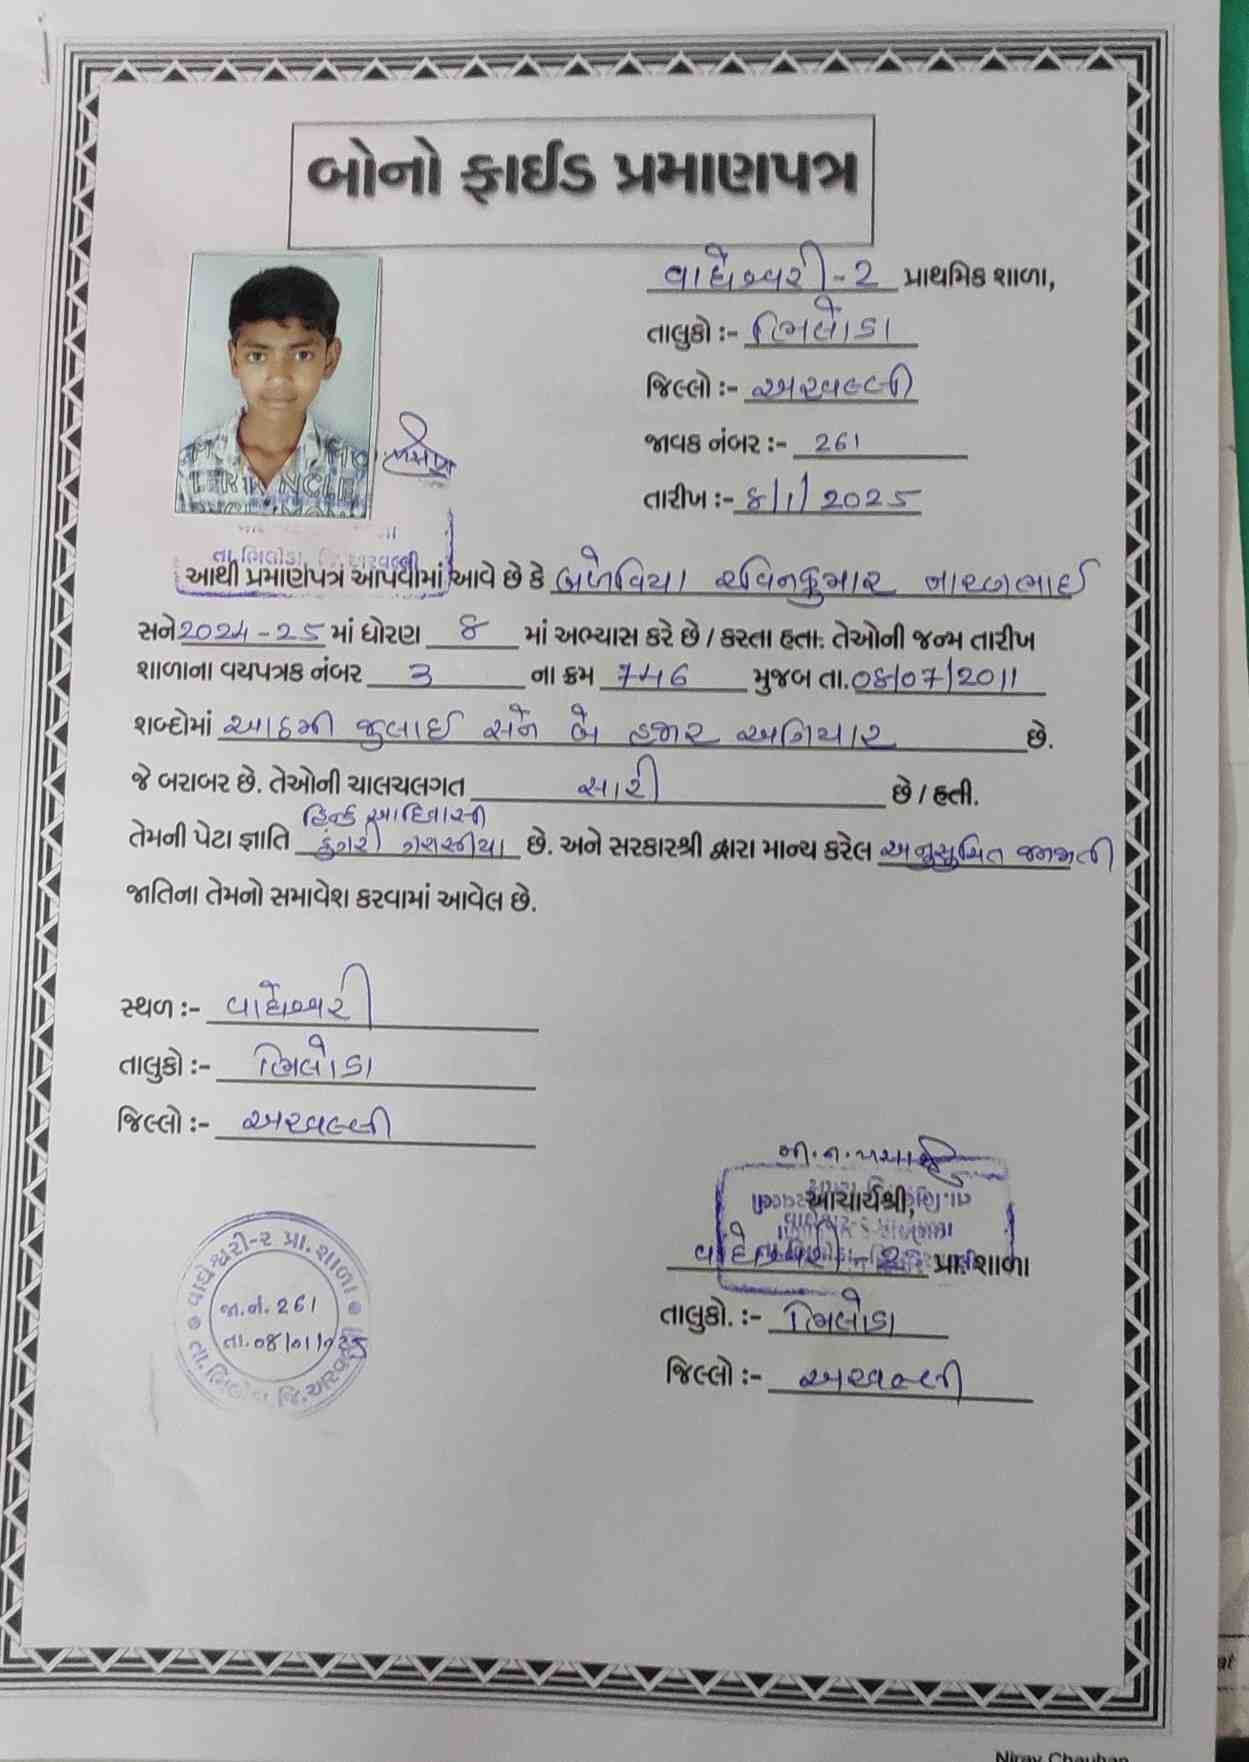 બોનો ફાઈડ પ્રમાણપત્ર
વાઘેશ્વરી-2 પ્રાથમિક શાળા,
તાલુકો :- ભિલોડા
જિલ્લો :- અરવલ્લી
જાવક નંબર :- 261
તારીખ :- 8/1/2025
તા.ભિલોડા, જિ.અરવલ્લી
આથી પ્રમાણપત્ર આપવામાં આવે છે કે બળેવિયા રવિનકુમાર નારણભાઈ
સને 2024-25 માં ધોરણ 8 માં અભ્યાસ કરે છે / કરતા હતા. તેઓની જન્મ તારીખ
શાળાના વયપત્રક નંબર 3 ના ક્રમ 746 મુજબ તા. 08/07/2011
શબ્દોમાં આઠમી જુલાઈ સને બે હજાર અગિયાર છે.
જે બરાબર છે. તેઓની ચાલચલગત સારી છે / હતી.
હિન્દુ આદિવાસી
તેમની પેટા જ્ઞાતિ ડુંગરી ગરાસીયા છે. અને સરકારશ્રી દ્વારા માન્ય કરેલ અનુસુચિત જનજાતી
જાતિના તેમનો સમાવેશ કરવામાં આવેલ છે.
સ્થળ :- વાઘેશ્વરી
તાલુકો :- ભિલોડા
જિલ્લો :- અરવલ્લી
આચાર્યશ્રી,
વાઘેશ્વરી-2 પ્રા. શાળા
તાલુકો. :- ભિલોડા
જિલ્લો :- અરવલ્લી
વાઘેશ્વરી-૨ પ્રા. શાળા
જા.નં. 261
તા. 08/01/2025
તા.ભિલોડા જિ.અરવલ્લી
Nirav Chauhan